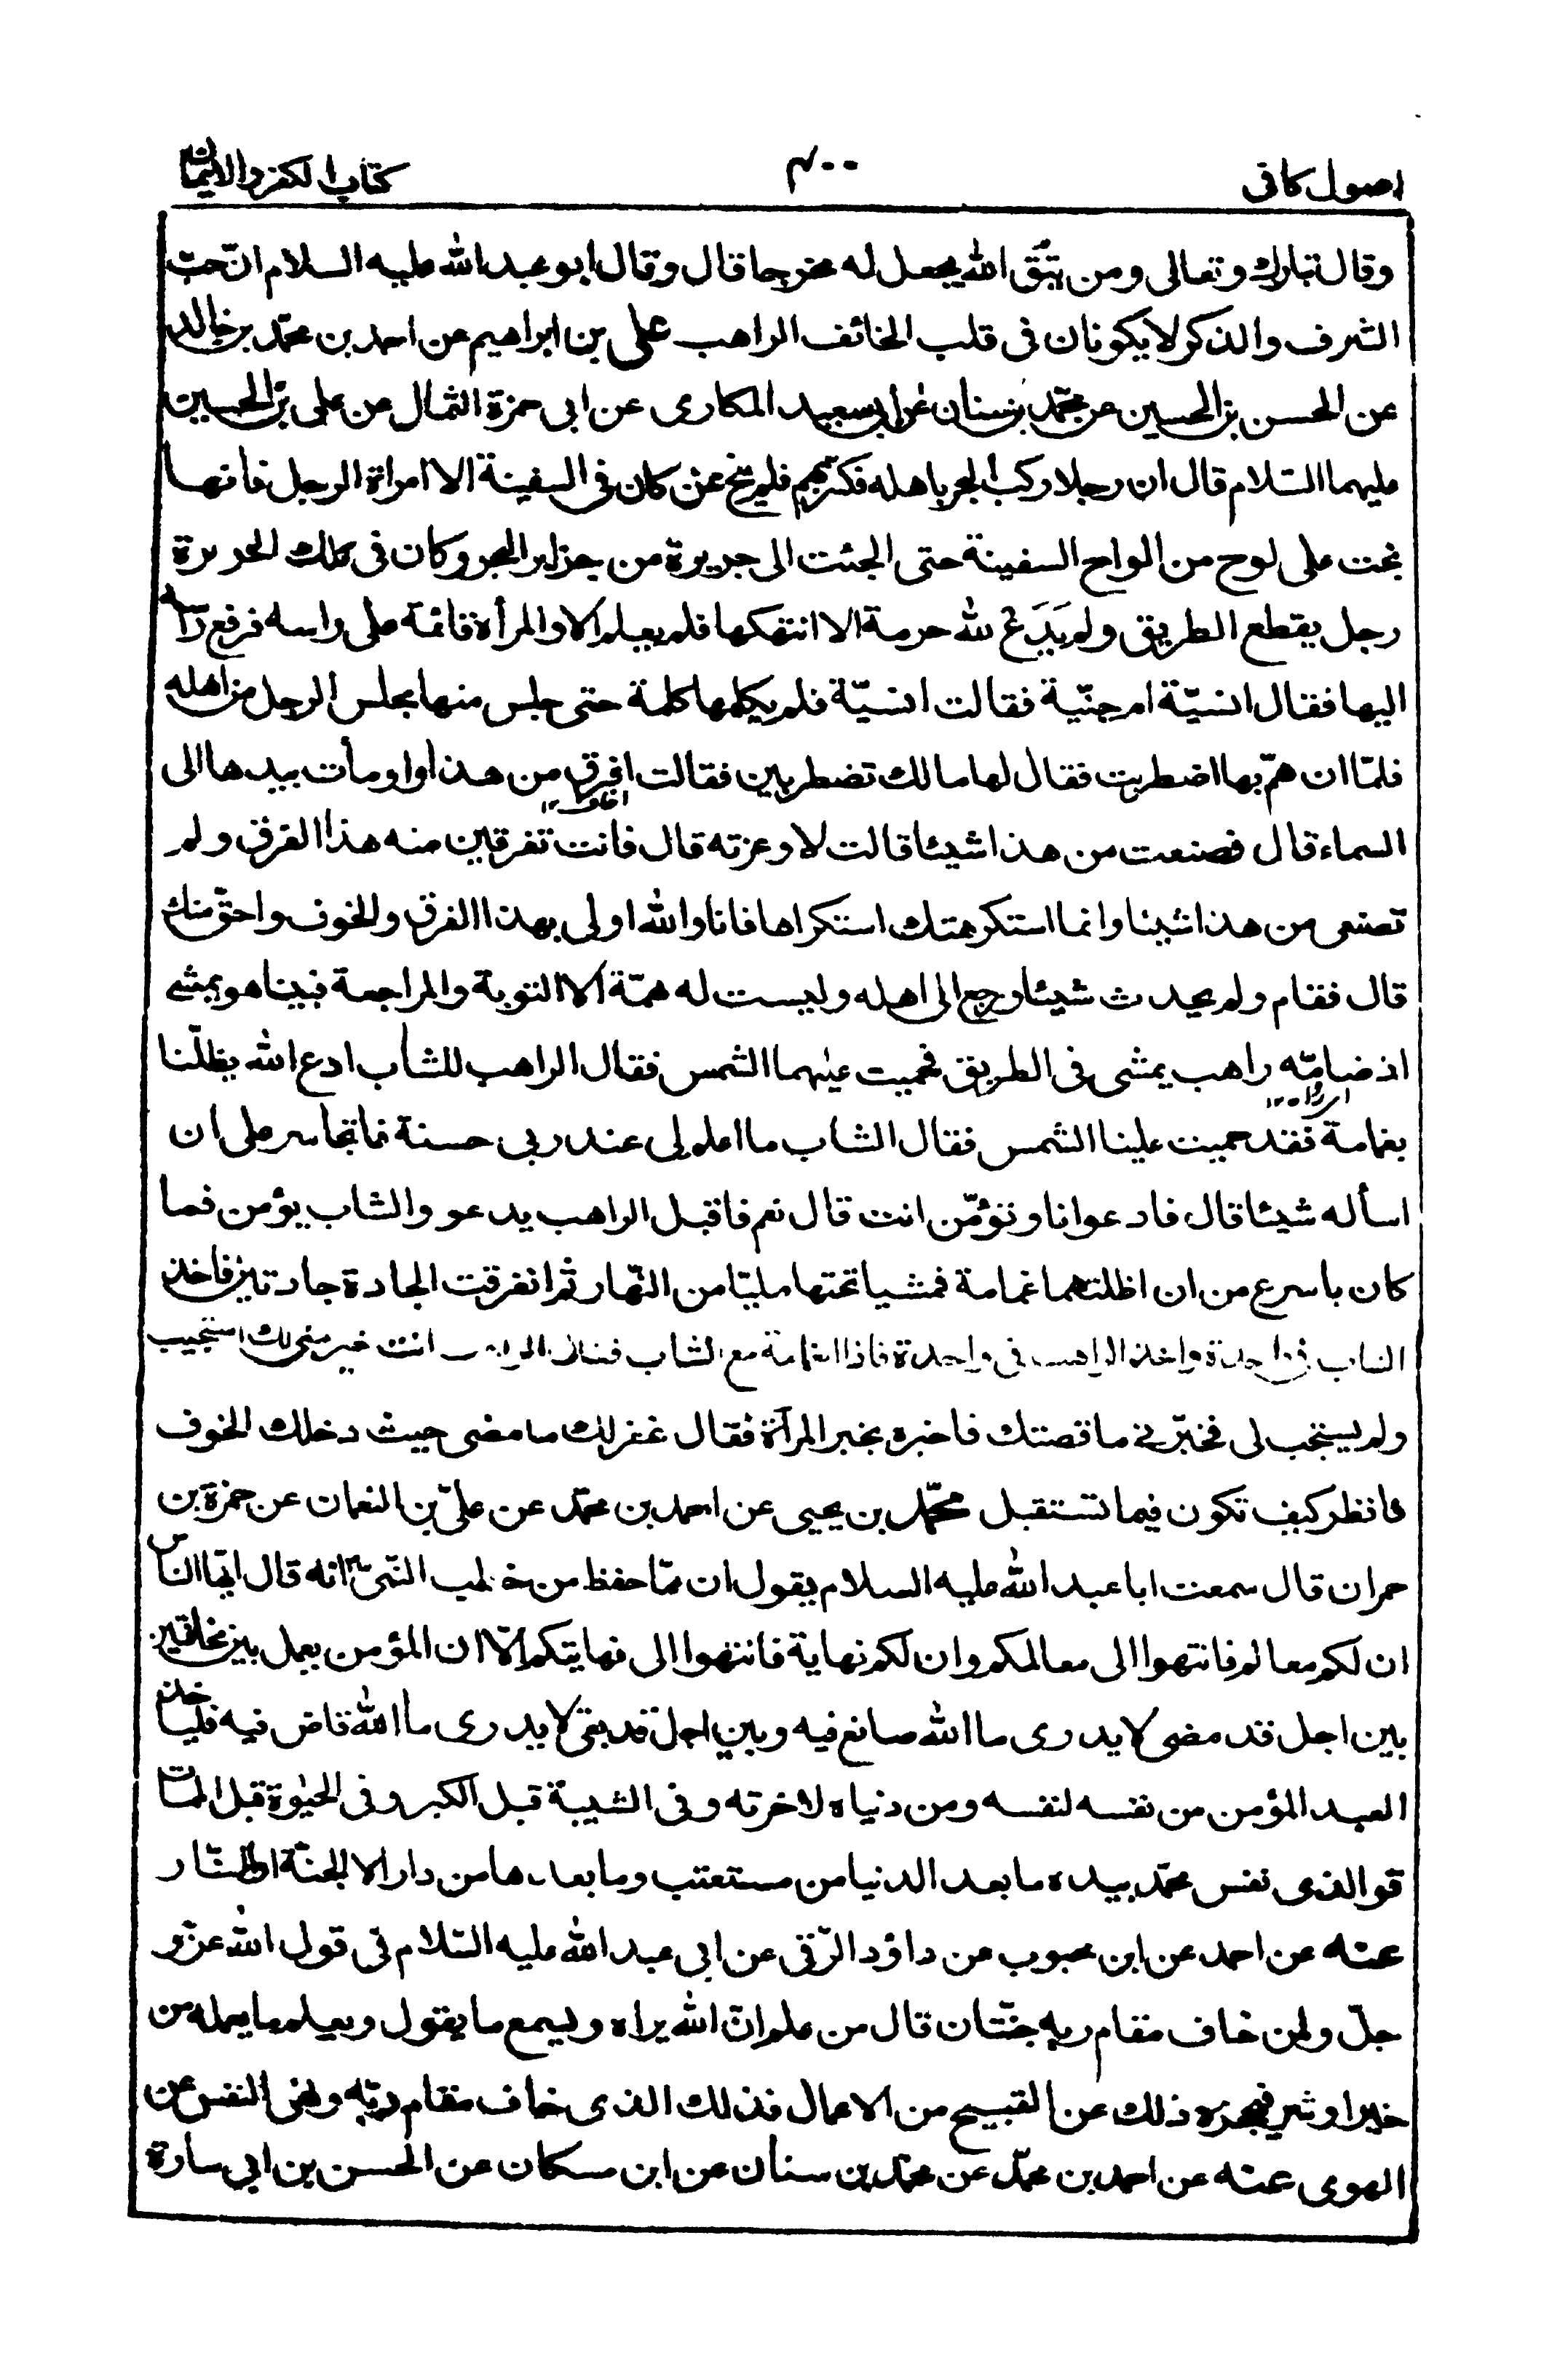 اصول كافى
۴۰۰
كتاب الكفر والايمان
وقال تبارك وتعالى ومن يتق الله يجعل له مخرجا قال وقال ابو عبد الله عليه السلام ان حب
الشرف والذكر لا يكونان فى قلب الخائف الراهب على بن ابراهيم عن احمد بن محمد بن خالد
عن الحسن بن الحسين عن محمد بن سنان عن ابى سعيد المكارى عن ابى حمزة الثمالى عن على بن الحسين
عليهما السلام قال ان رجلا ركب البحر باهله فكسر بهم فلم ينج ممن كان فى السفينة الا امراة الرجل فانها
نجت على لوح من الواح السفينة حتى الجئت الى جزيرة من جزاير البحر وكان فى تلك الجزيرة
رجل يقطع الطريق ولم يَدَع لله حرمة الا انتهكها فلم يعلم الا والمرأة قائمة على راسه فرفع راسه
اليها فقال انسيّة ام جنّية فقالت انسيّة فلم يكلمها كلمة حتى جلس منها مجلس الرجل من اهله
فلمّا ان همّ بها اضطربت فقال لها مالك تضطربين فقالت افرق من هذا واومأت بيدها الى
اخاف ۱۲
السماء قال فصنعت من هذا شيئا قالت لا وعزته قال فانت تفرقين منه هذا الفرق ولم
تصنعى من هذا شيئا وانما استكرهتك استكراها فانا والله اولى بهذا الفرق والخوف واحقّ منك
قال فقام ولم يحدث شيئا ورجع الى اهله وليست له همّة الا التوبة والمراجعة فبينا هو يمشى
اذ ضامّه راهب يمشى فى الطريق فحميت عليهما الشمس فقال الراهب للشاب ادع الله يظلّنا
بغامة فقد حميت علينا الشمس فقال الشاب ما اعلم لى عند ربى حسنة فاتجاسر على ان
اسأله شيئا قال فادعو انا وتؤمّن انت قال نعم فاقبل الراهب يدعو والشاب يؤمن فما
كان باسرع من ان اظلتهما غمامة فمشيا تحتها مليّا من النّهار ثم انفرقت الجادة جادتين فاخذ
الشاب فى واحدة واخذ الراهب فى واحدة فاذا الغمامة مع الشاب فقال الراهب انت خير منى لك استجيب
ولم يستجب لى فخبّرنى ما قصتك فاخبره بخبر المرأة فقال غفر لك ما مضى حيث دخلك الخوف
فانظر كيف تكون فيما تستقبل محمّد بن يحيى عن احمد بن محمّد عن علىّ بن النعمان عن حمزة بن
حمران قال سمعت ابا عبد الله عليه السلام يقول ان ممّا حفظ من خطب النّبىّ انه قال ايّها الناس
ان لكم معالم فانتهوا الى معالمكم وان لكم نهاية فانتهوا الى نهايتكم الّا ان المؤمن يعمل بين مخافتين
بين اجل قد مضى لا يدرى ما الله صانع فيه وبين اجل قد بقى لا يدرى ما الله قاض فيه فلياخذ
العبد المؤمن من نفسه لنفسه ومن دنياه لاخرته وفى الشيبة قبل الكبر وفى الحيوة قبل الممات
فو الذى نفس محمّد بيده ما بعد الدنيا من مستعتب وما بعدها من دار الا الجنّة او النّار
عنه عن احمد عن ابن محبوب عن داؤد الرّقى عن ابى عبد الله عليه السّلام فى قول الله عزّ و
جلّ ولمن خاف مقام ربه جنّتان قال من علم انّ الله يراه ويسمع ما يقول ويعلم ما يعمله من
خير او شر فيحجزه ذلك عن القبيح من الاعمال فذلك الذى خاف مقام ربّه ونهى النفس عن
الهوى عنه عن احمد بن محمّد عن محمّد بن سنان عن ابن مسكان عن الحسن بن ابى سارة